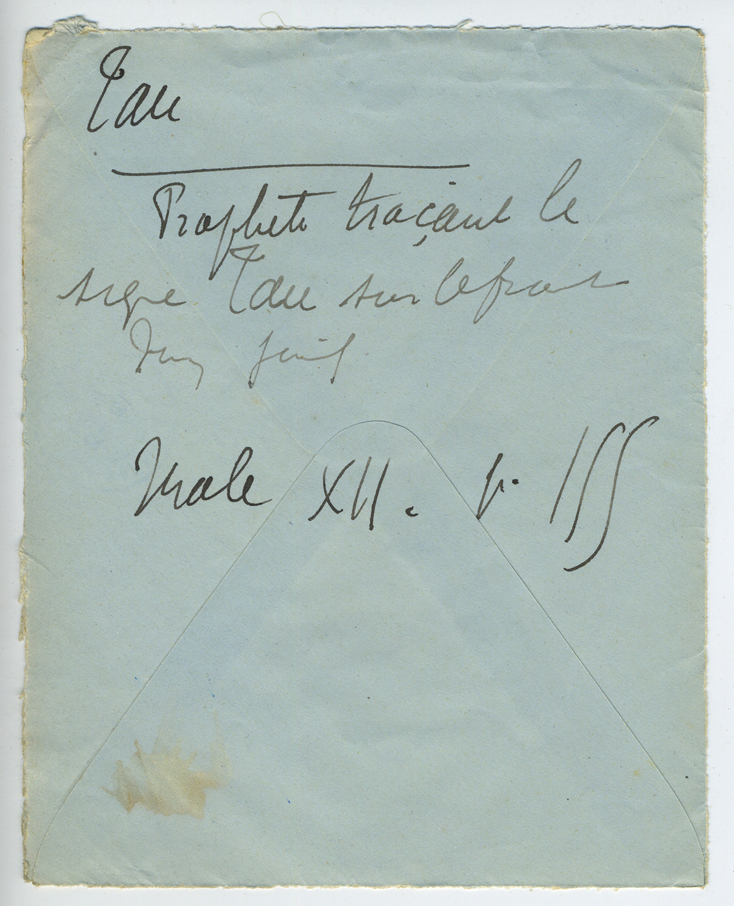 Tau
Prophète traçant le
signe Tau sur le front
d'un juif
Male XII. p. 155